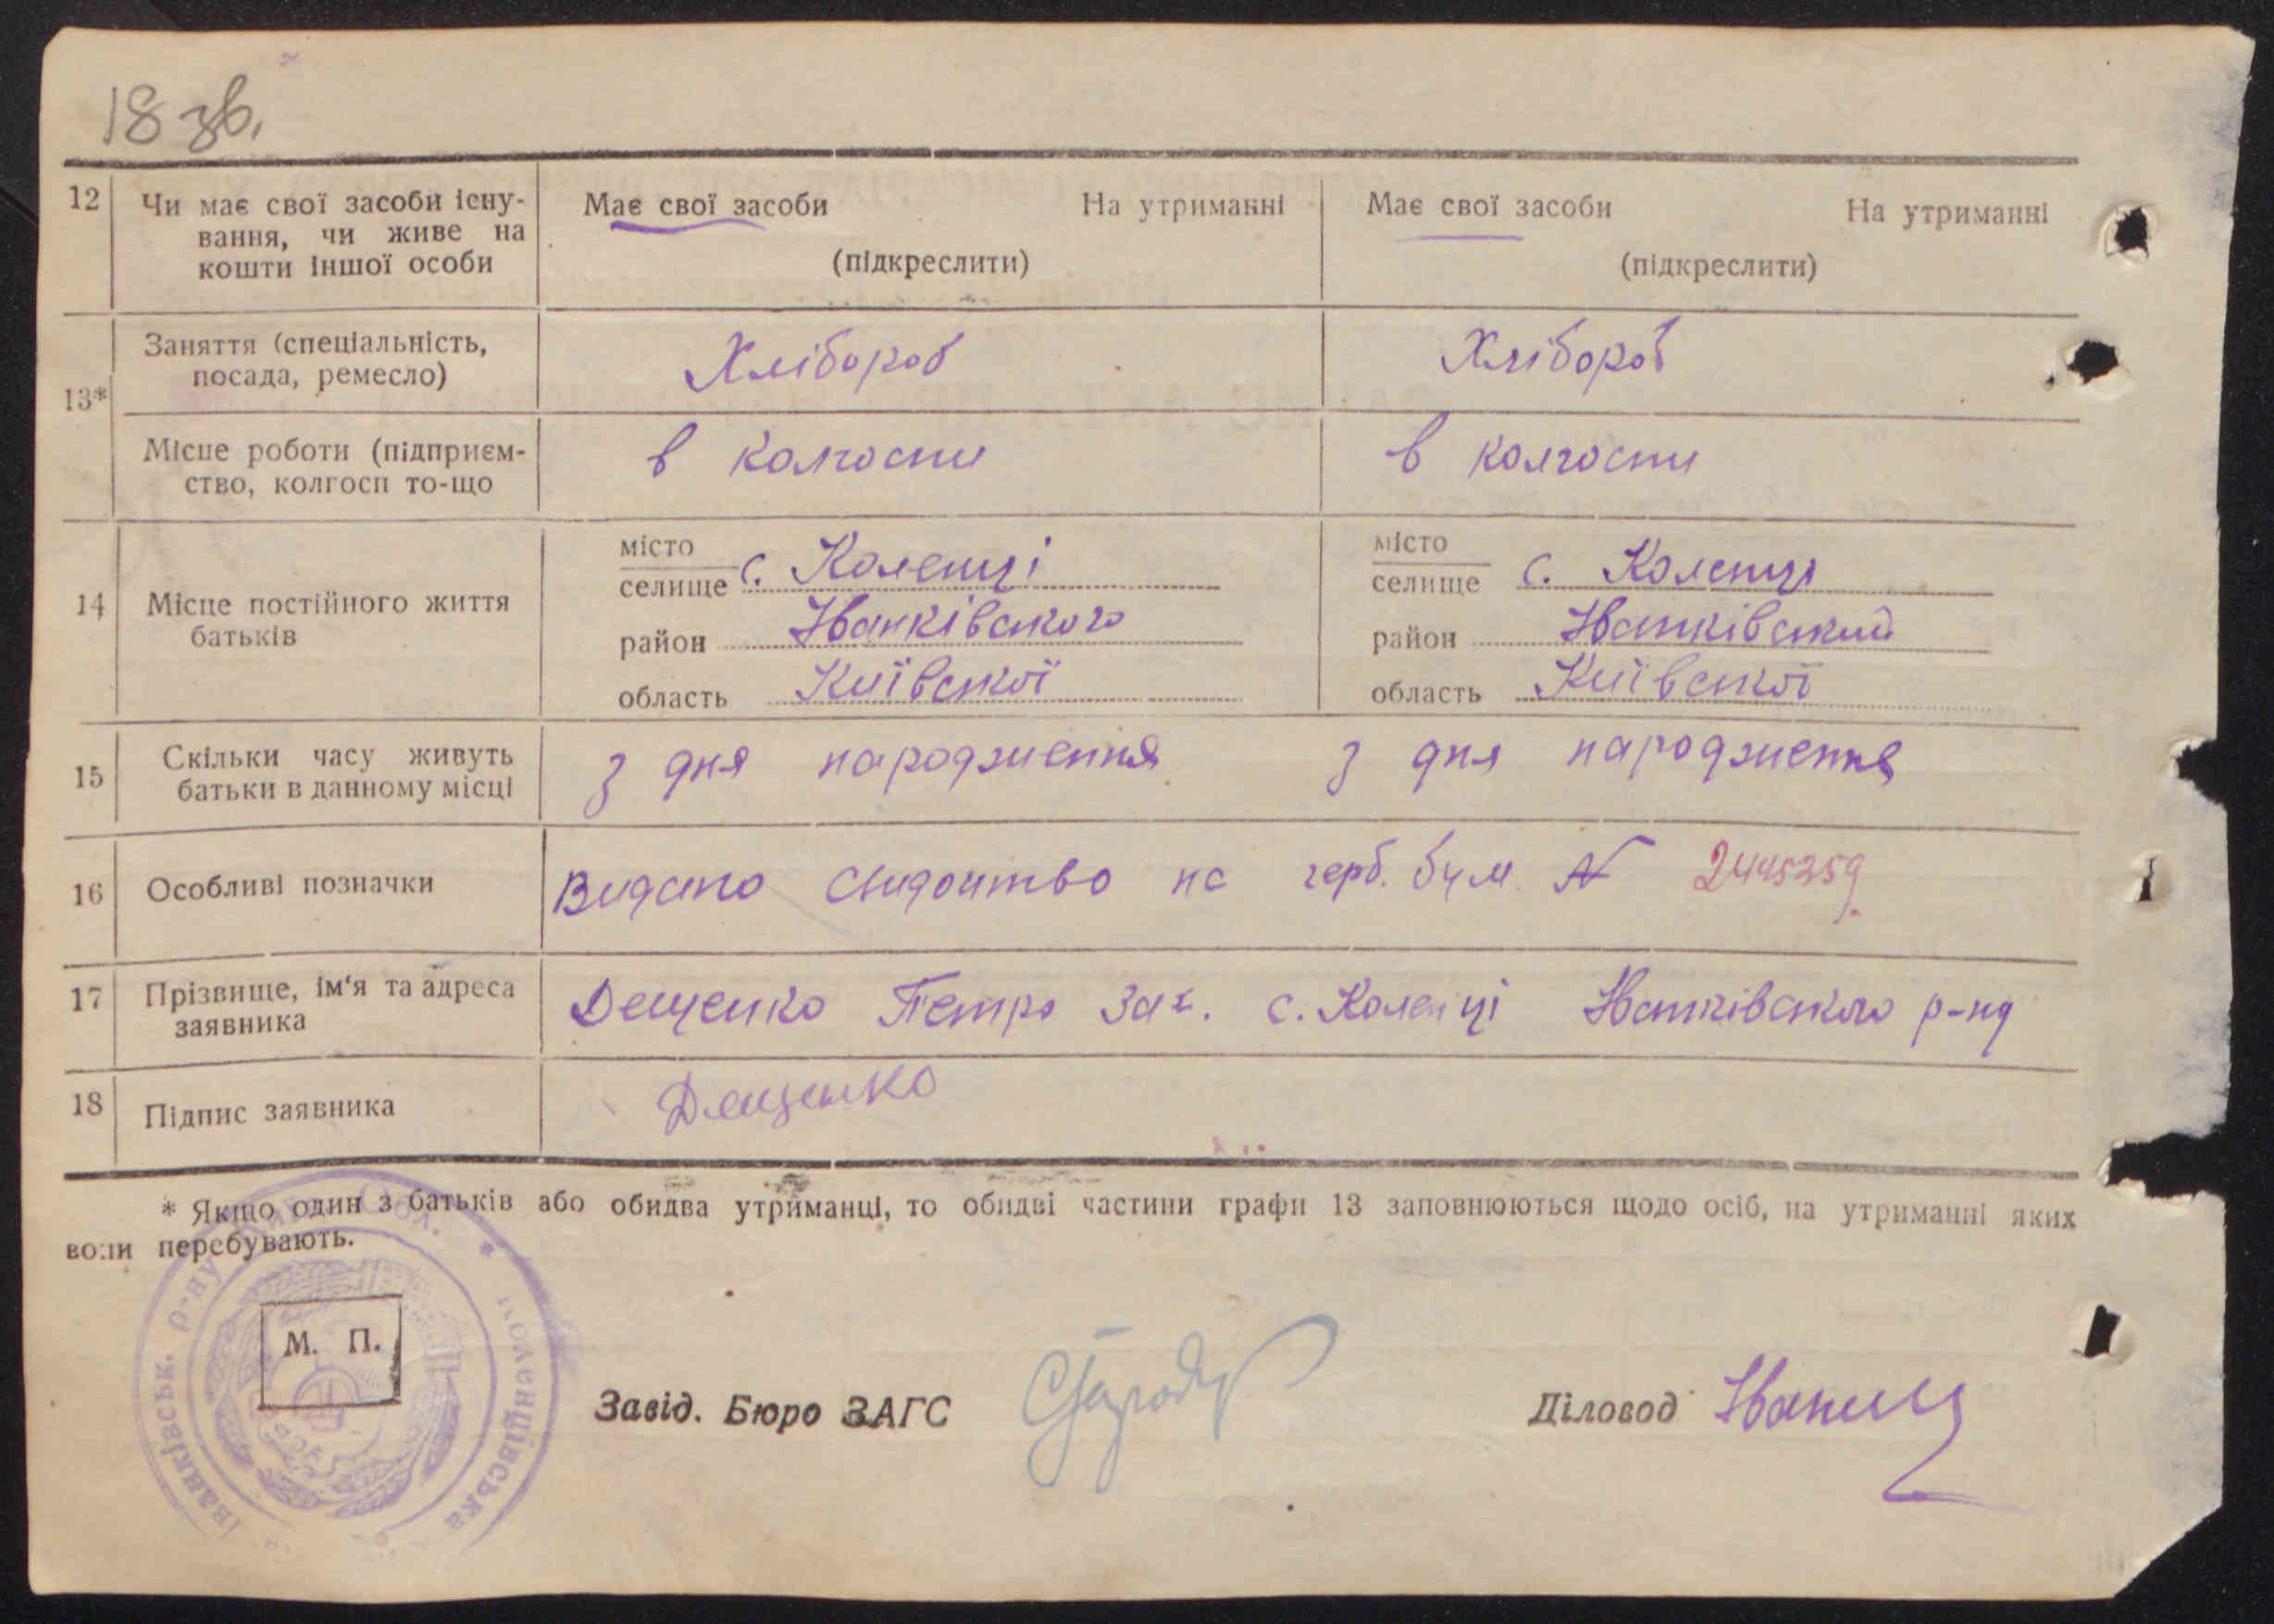 18 зв.
12 Чи має свої засоби існу- Має свої засоби На утриманні Має свої засоби На утриманні
вання, чи живе на
кошти іншої особи (підкреслити) (підкреслити)
13* Заняття (спеціальність, Хлібороб Хлібороб
посада, ремесло)
Місце роботи (підприєм- в колгоспи в колгоспи
ство, колгосп то-що
14 Місце постійного життя
батьків
місто
селище с. Коленці
район Иванківського
область Київської
місто
селище с. Коленця
район Иванківський
область Київської
15 Скільки часу живуть з дня народження з дня народження
батьки в данному місці
16 Особливі позначки Видано свидоитво на герб. бум № 2445259
17 Прізвище, ім'я та адреса Дещенко Петро Зах. с. Коленці Иванківського р-ну
заявника
18 Підпис заявника Дещенко
* Якщо один з батьків або обидва утриманці, то обидві частини графи 13 заповнюються щодо осіб, на утриманні яких
вони перебувають.
М. П.
Іванківськ. р-ну Обл. * Коленцівська
Завід. Бюро ЗАГС
Діловод